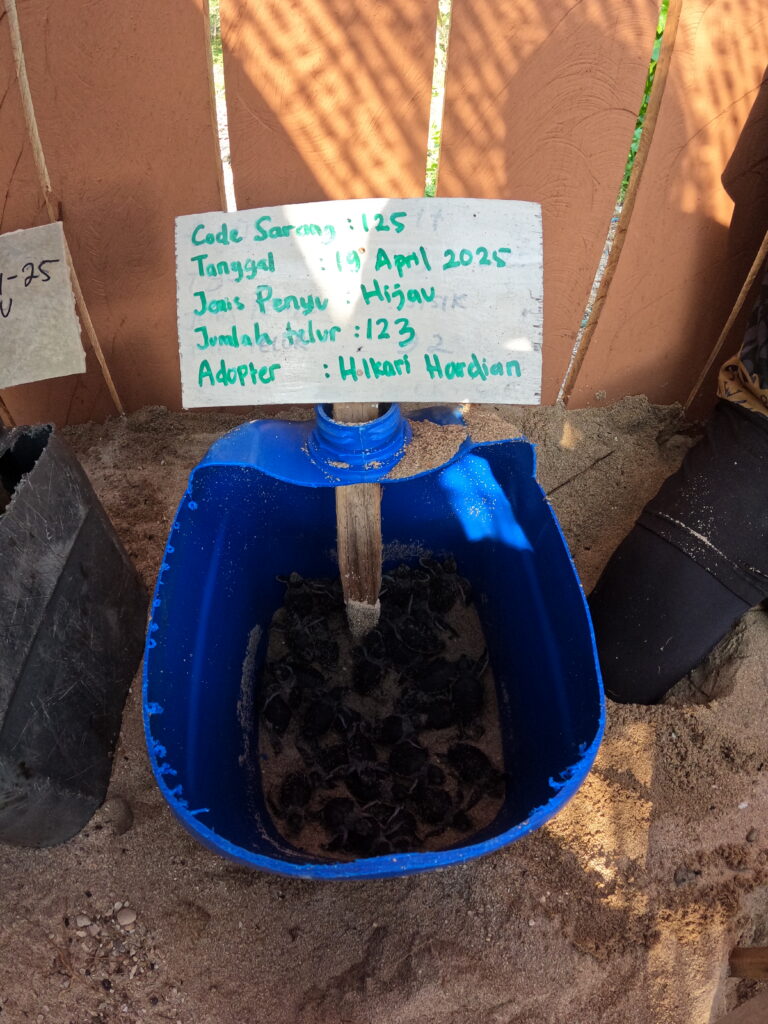 -25
Code Sarang : 125
Tanggal : 19 April 2025
Jenis Penyu : Hijau
Jumlah telur : 123
Adopter : Hikari Hardian